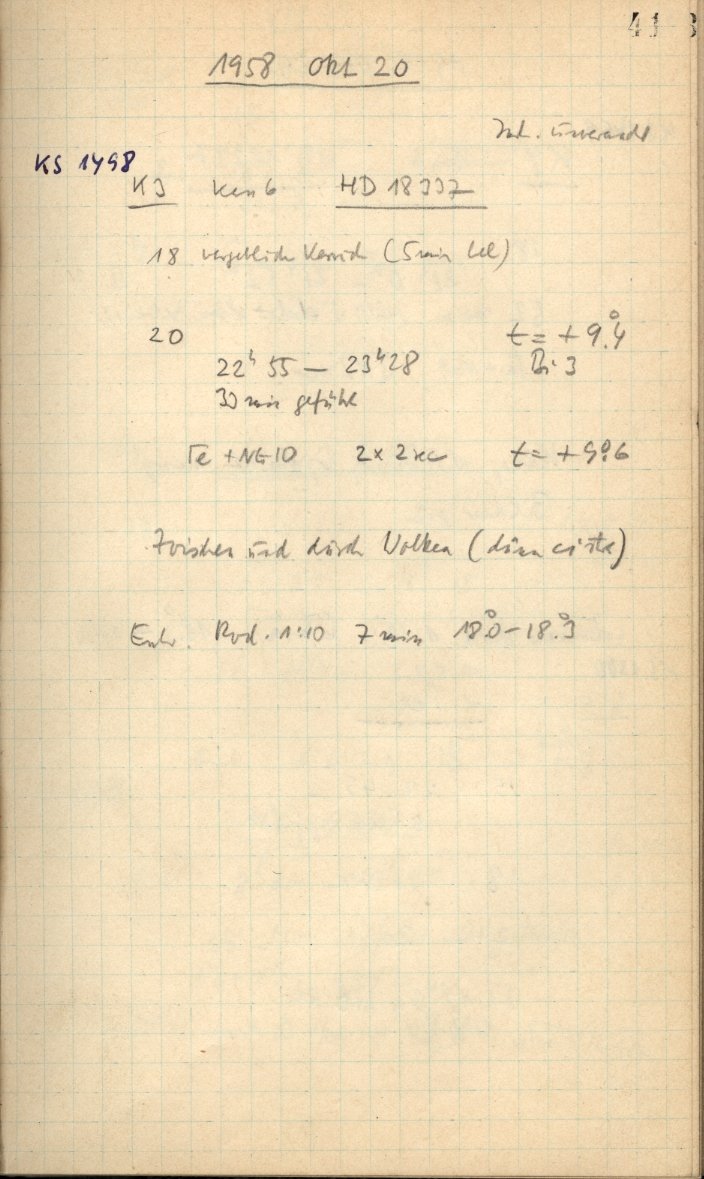 41
1958 Okt 20
Int. unverändt
KS 1498
K3 HD 18337
18 vergeblich Versuch (5 min bel)
20 t = + 9°.4
22h 55 – 23h 28 Bi 3
30 min geführt
Fe + NG 10 2 x 2 sec t = + 9°.6
Zwischen und durch Wolken (dünn cistr)
Entw. Rod. 1:10 7 min 18°.0 – 18°.3